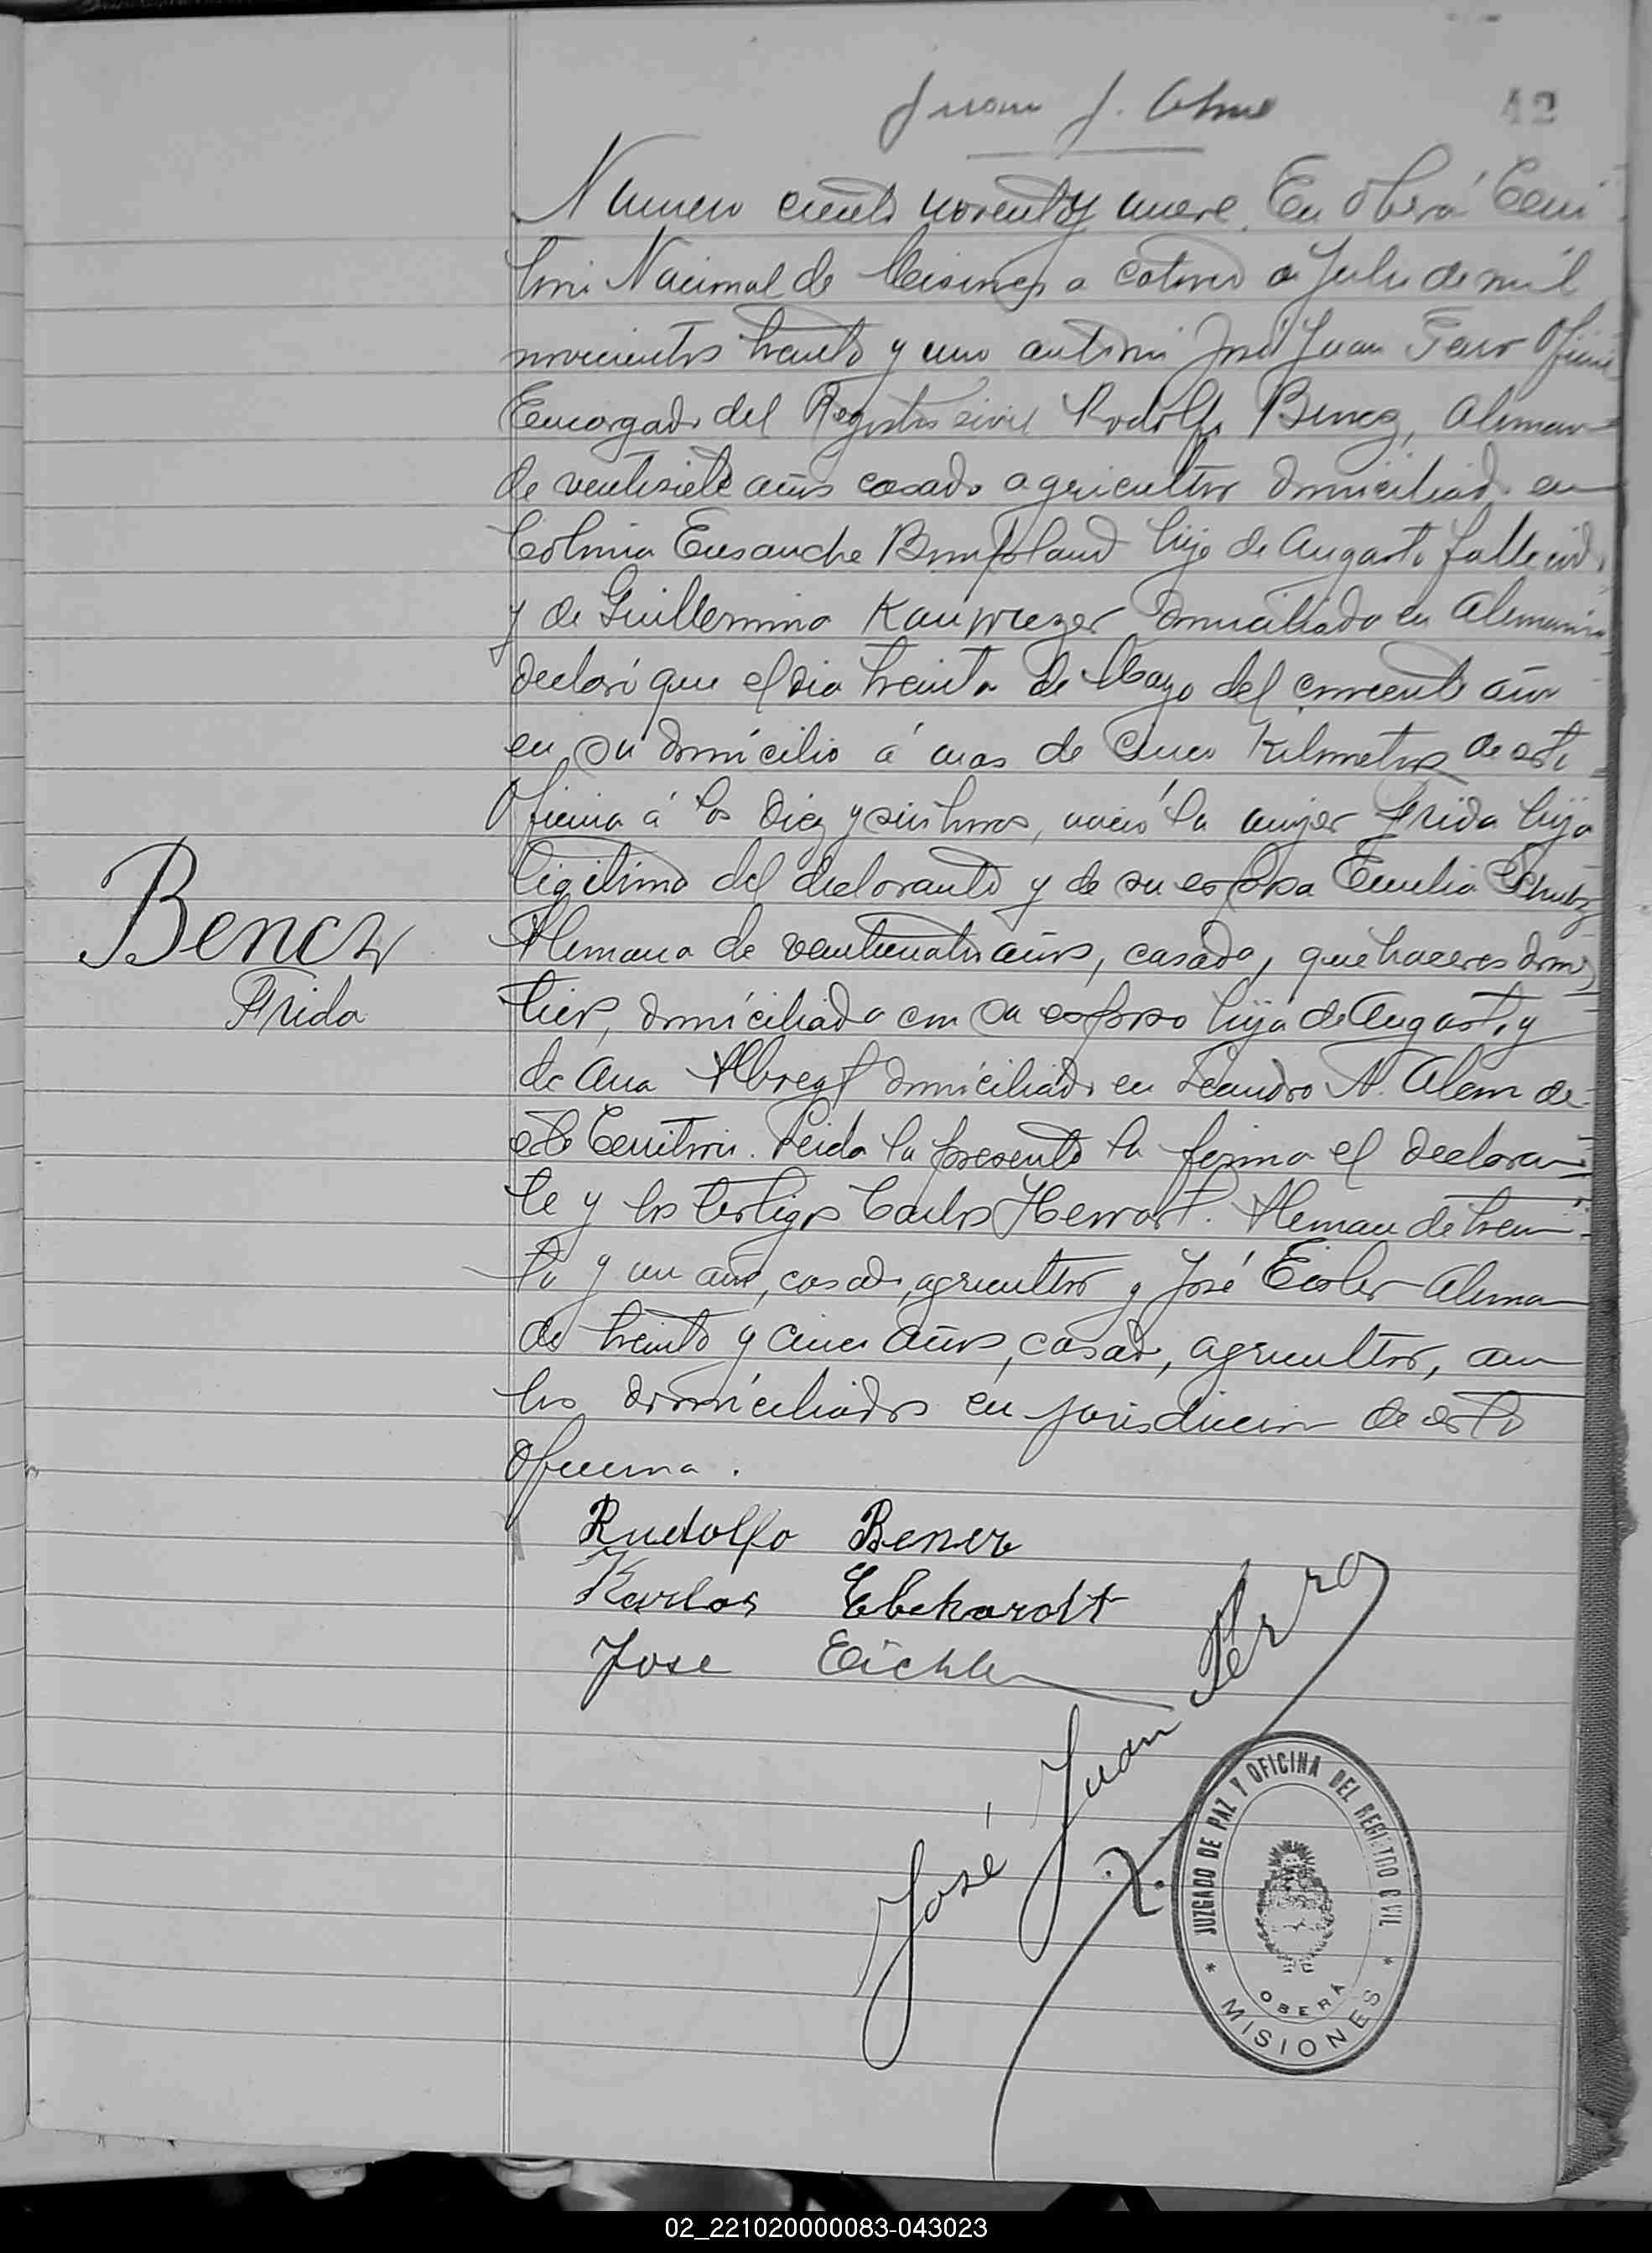 Juan J.
42
Numero ciento noventa y nueve. En Oberá Terri
torio Nacional de Misiones a catorce de Julio de mil
novecientos treinta y uno ante mi José Juan Ferro Oficial
Encargado del Registro civil Rodolfo Bencz, Aleman
de veintisiete años casado agricultor domiciliado en
Colonia Ensanche Bompland hijo de Augusto fallecido
y de Guillermina domiciliada en Alemania
declaró que el dia treinta de Mayo del corriente año
en su domicilio á mas de cinco Kilometros de esta
Oficina á las diez y seis horas, nació la mujer Frida hija
legitima del declarante y de su esposa Emilia Schulz
Alemana de veinticuatro años, casada, que haceres domes
ticos, domiciliada con su esposo hija de Augusto y
de Ana domiciliados en Leandro N. Alem de
este Territorio. Leida la presente la firma el declaran
te y los testigos Carlos Aleman de trein
ta y un años, casado, agricultor y José Eisler Aleman
de treinta y cinco años, casado, agricultor, am
bos domiciliados en jurisdiccion de esta
Oficina.
Bencz
Frida
Rudolfo Bencz
Karlos Ebehardt
Jose Eichler
José Juan Ferro
JUZGADO DE PAZ Y OFICINA DEL REGISTRO CIVIL
OBERÁ
* MISIONES *
02_221020000083-043023